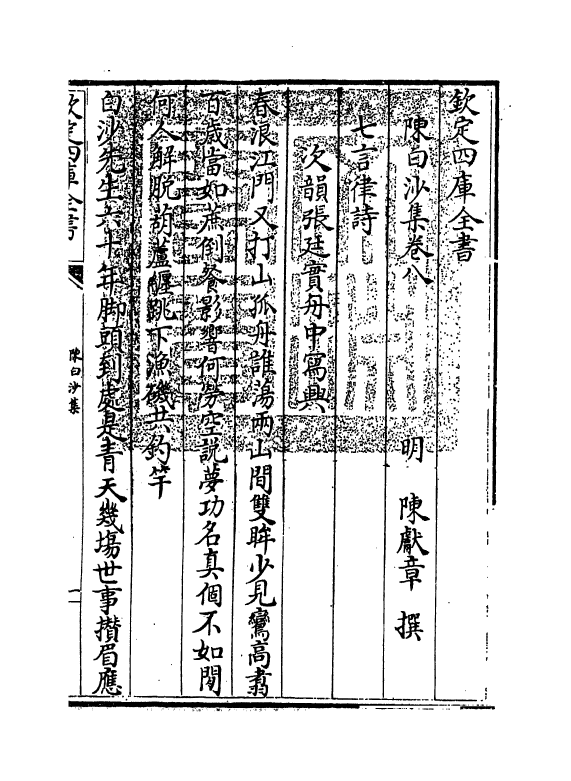 欽定四庫全書
陳白沙集卷八
明 陳獻章 撰
七言律詩
次韻張廷實舟中寫興
春浪江門又打山孤舟誰蕩兩山間雙眸少見鸞高翥
百歲當如蔗倒餐影響何勞空說夢功名真個不如閒
何人解脫葫蘆纏跳下漁磯共釣竿
白沙先生六十年脚頭到處是青天幾場世事攢眉應
欽定四庫全書
陳白沙集
一